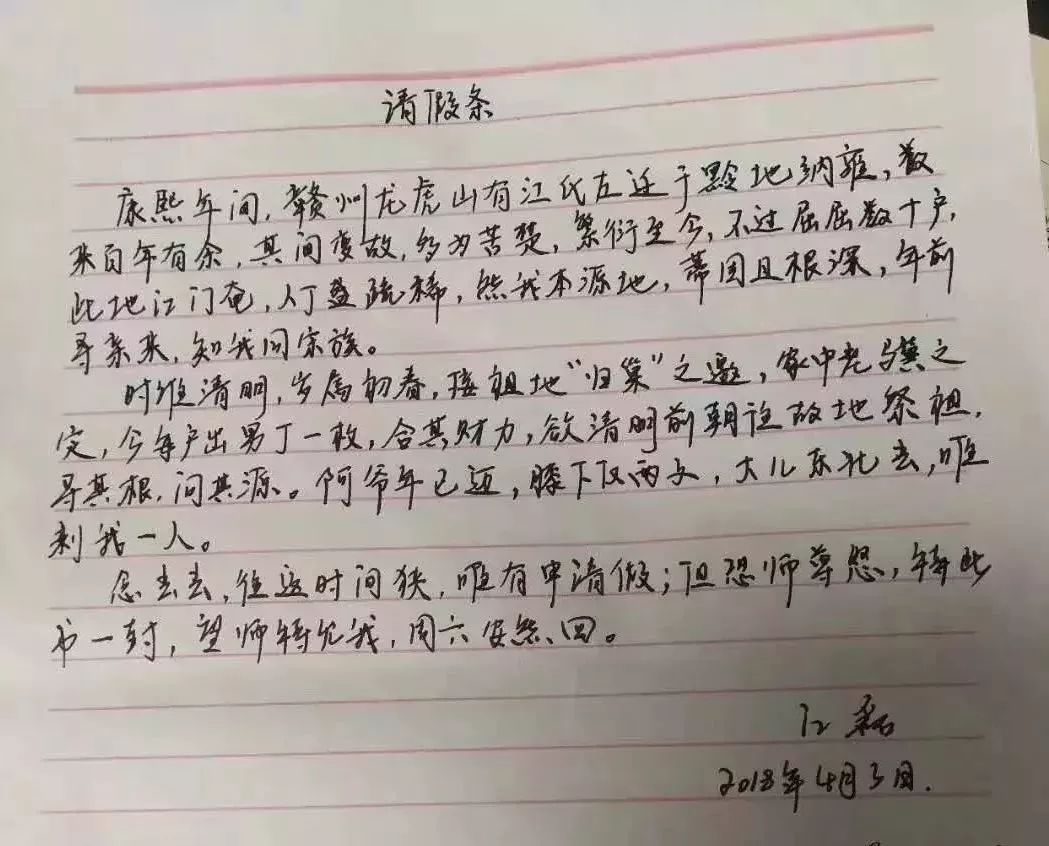 请假条
康熙年间，赣州龙虎山有江氏左迁于黔地纳雍，数
来百年有余，其间变故，多为苦楚，繁衍至今，不过屈屈数十户，
此地江门奄，人丁益疏稀，然我本源地，蒂固且根深，年前
寻亲来，知我同宗族。
时维清明，岁属初春，接祖地“归巢”之邀，家中老骥之
定，今每户出男丁一枚，合其财力，欲清明前朝往故地祭祖，
寻其根，问其源。阿爷年已迈，膝下仅两丈，大儿东北去，唯
剩我一人。
念去去，往返时间狭，唯有申请假；但恐师尊怒，特此
书一封，望师特允我，周六安然回。
江磊
2018年4月3日.